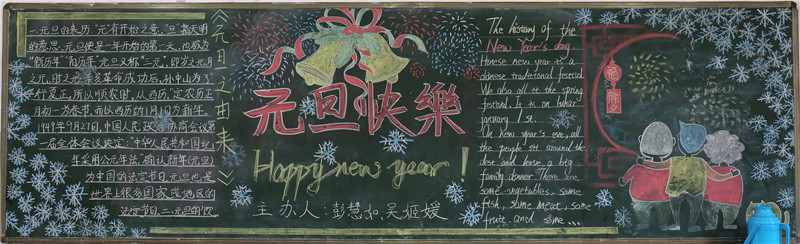 一.元旦的来历:"元"有开始之意,"旦"指天明
的意思.元旦便是一年开始的第一天,也被为
"新历年""阳历年".元旦又称"三元",即岁之元、月
之元、时之元.辛亥革命成功后,孙中山为了
"行夏正,所以顺农时,从西历,定农历正
月初一为春节,而以西历的1月1日为新年.
1949年9月27日,中国人民政治协商会议第
一届全体会议决定:"中华人民共和国纪
年采用公元年法",确认新年(元旦)
为中国的法定节日.元旦也是
世界上很多国家或地区的
法定节日.二.元旦的饮
《元旦之由来》
元旦快樂
Happy new year!
主办人:彭慧如,吴姬媛
The history of the
New Year's day.
Chinese new year is a
chinese traditional festival.
We also all it the spring
festival. It is on lunar
January 1st.
On new year's eve, all
the people sit around the
desk and have a big
family dinner. There are
some vegetables, some
fish, some meat, some
fruit and some...